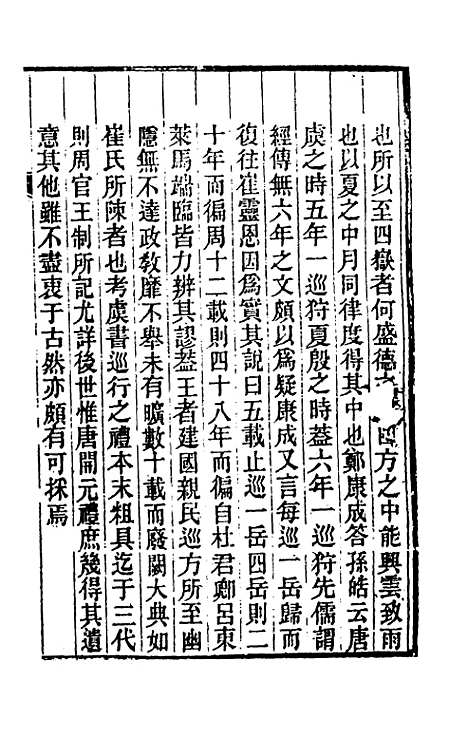 也所以至四嶽者何盛德 四方之中能興雲致雨
也以夏之中月同律度得其中也鄭康成答孫皓云唐
虞之時五年一巡狩夏殷之時葢六年一巡狩先儒謂
經傳無六年之文頗以爲疑康成又言每巡一岳歸而
復往崔靈恩因爲實其說曰五載止巡一岳四岳則二
十年而徧周十二載則四十八年而徧自杜君卿呂東
萊馬端臨皆力辨其謬葢王者建國親民巡方所至幽
隱無不達政敎靡不舉未有曠數十載而廢闕大典如
崔氏所陳者也考虞書巡行之禮本末粗具迄于三代
則周官王制所記尤詳後世惟唐開元禮庶幾得其遺
意其他雖不盡衷于古然亦頗有可採焉